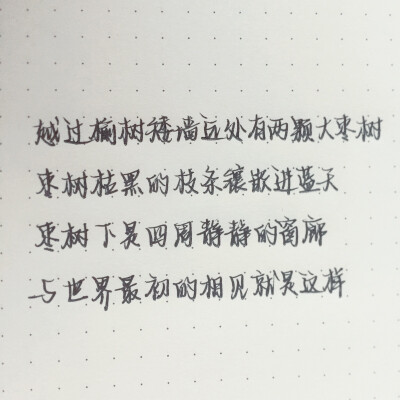 越过榆树矮墙远处有两颗大枣树
枣树枯黑的枝条镶嵌进蓝天
枣树下是四周静静的窗廊
与世界最初的相见就是这样